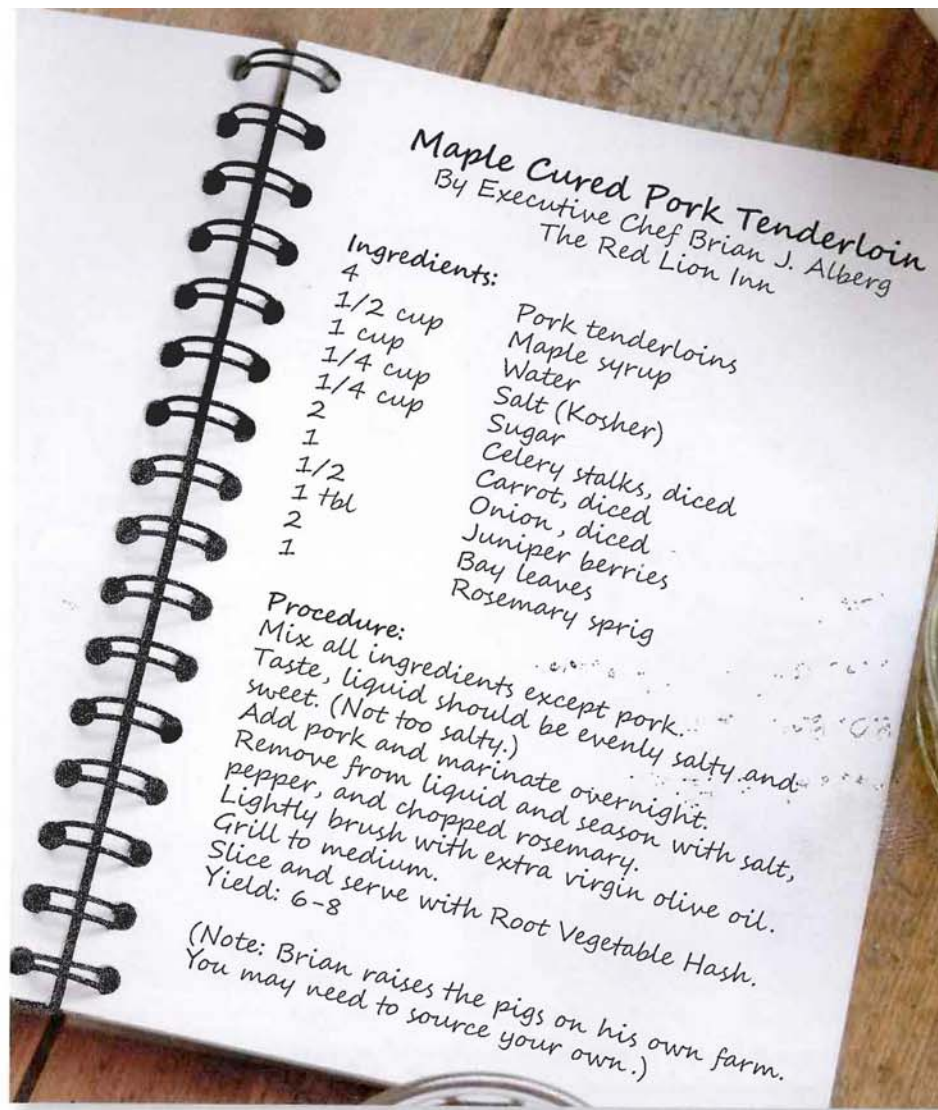 Maple Cured Pork Tenderloin
By Executive Chef Brian J. Alberg
The Red Lion Inn
Ingredients:
4 Pork tenderloins
1/2 cup Maple syrup
1 cup Water
1/4 cup Salt (Kosher)
1/4 cup Sugar
2 Celery stalks, diced
1 Carrot, diced
1/2 Onion, diced
1 tbl Juniper berries
2 Bay leaves
1 Rosemary sprig
Procedure:
Mix all ingredients except pork.
Taste, liquid should be evenly salty and
sweet. (Not too salty.)
Add pork and marinate overnight.
Remove from liquid and season with salt,
pepper, and chopped rosemary.
Lightly brush with extra virgin olive oil.
Grill to medium.
Slice and serve with Root Vegetable Hash.
Yield: 6-8
(Note: Brian raises the pigs on his own farm.
You may need to source your own.)